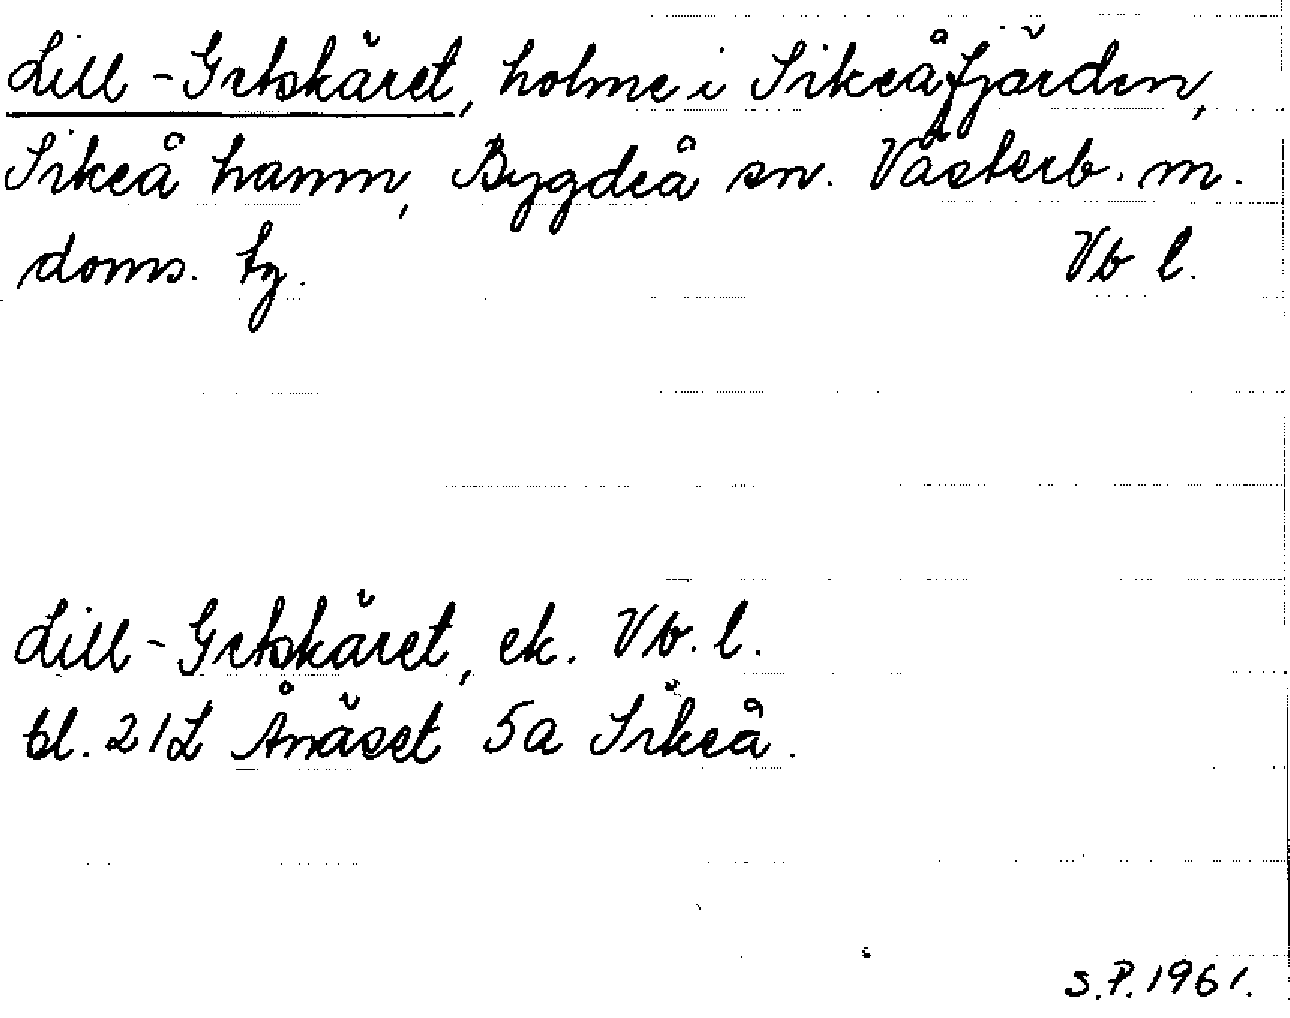 Lill-Grtskäret, holme i Sikeåfjärden,
Sikeå hamn, Bygdeå sn. Västerb. m.
doms. tg. Vb l.
Lill-Grtskäret, ek. Vb. l.
bl. 21L Ånäset 5a Sikeå.
S.P. 1961.